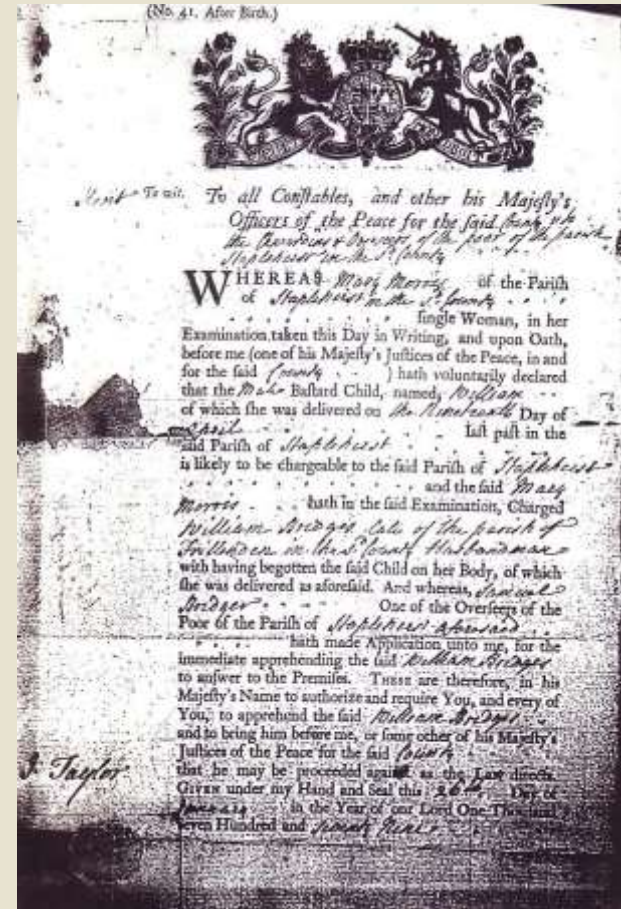 (No. 41. After Birth.)
Kent To wit. To all Conſtables, and other his Majeſty's
Officers of the Peace for the ſaid County &
the Churchwardens & Overseers of the poor of the parish
Staplehurst in the Sd. County
WHEREAS Mary Morris of the Pariſh
of Staplehurst in the Sd. County
ſingle Woman, in her
Examination taken this Day in Writing, and upon Oath,
before me (one of his Majeſty's Juſtices of the Peace, in and
for the ſaid County ) hath voluntarily declared
that the Male Baſtard Child, named, William
of which ſhe was delivered on the Nineteenth Day of
April laſt paſt in the
ſaid Pariſh of Staplehurst
is likely to be chargeable to the ſaid Pariſh of Staplehurst
and the ſaid Mary
Morris hath in the ſaid Examination, Charged
William Bridges late of the parish of
Frittenden in the Sd. County Husbandman
with having begotten the ſaid Child on her Body, of which
ſhe was delivered as aforeſaid. And whereas, Samuel
Bridger One of the Overſeers of the
Poor of the Pariſh of Staplehurst aforesaid
hath made Application unto me, for the
immediate apprehending the ſaid William Bridges
to anſwer to the Premiſes. THESE are therefore, in his
Majeſty's Name to authorize and require You, and every of
You, to apprehend the ſaid William Bridges
and to bring him before me, or ſome other of his Majeſty's
Juſtices of the Peace for the ſaid County
that he may be proceeded againſt as the Law directs.
J. Taylor
GIVEN under my Hand and Seal this 26th. Day of
January in the Year of our Lord One Thouſand
Seven Hundred and Seventy Nine.